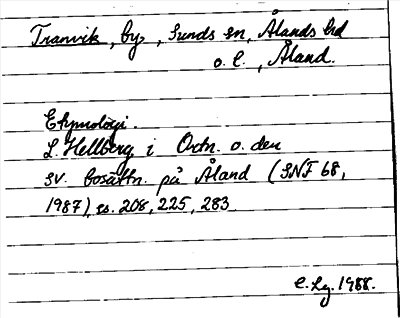 Tranvik, by, Sunds sn, Ålands hd
o. l., Åland.
Etymologi.
L. Hellberg i Ortn. o. den
sv. bosättn. på Åland (SNF 68,
1987), ss. 208, 225, 283
1988.